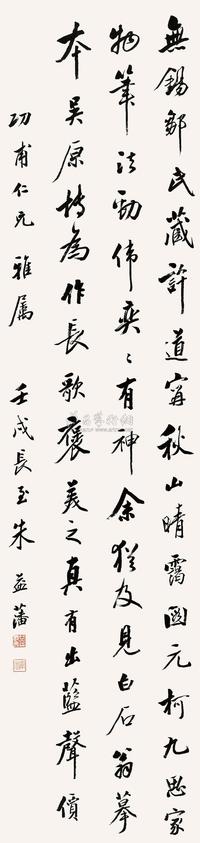 無錫鄒氏藏許道甯秋山晴靄圖元柯九思家
物筆法勁偉奕〻有神余猶及見白石翁摹
本吳原博為作長歌褒美之真有出藍聲價
功甫仁兄雅属 壬戌長至朱益藩